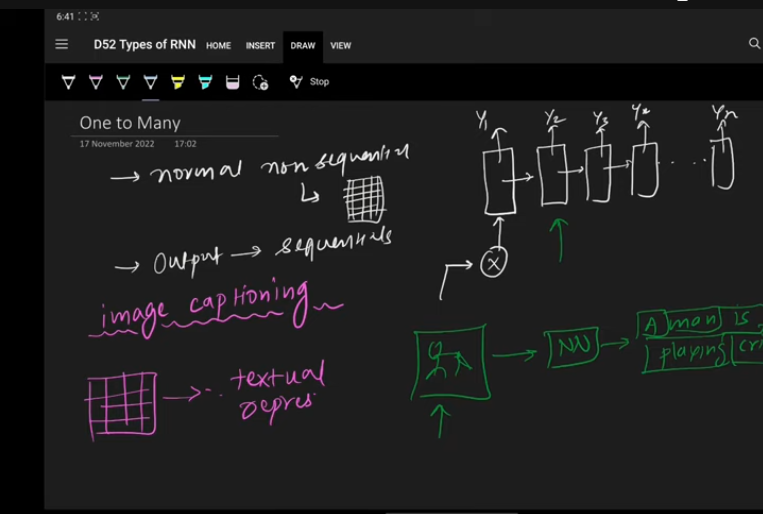 6:41
D52 Types of RNN HOME INSERT DRAW VIEW
Stop
One to Many
17 November 2022 17:02
→ normal non sequential
→ Output → sequentials
image captioning
textual
depres
Y1 Y2 Y3 Y4 Yn
X
NN
A man is
playing cri